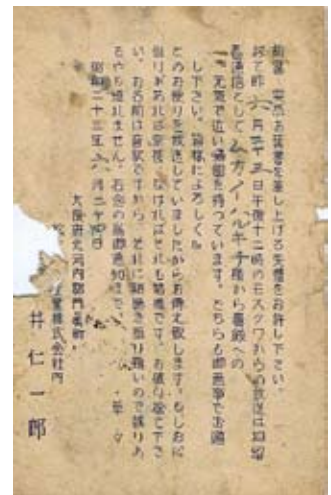 前略 突然お葉書を差し上げる失礼をお許し下さい。
扨て昨 六月廿三日午後十二時のモスクワからの放送は抑留
者通信として 様から貴殿への
一、元気で近い帰国を待っています。そちらも御無事でお過
し下さい。皆様によろしく
とのお便りを放送していましたからお伝え致します。もしお心
当りがあれば幸甚、なければそれも結構です。お破り捨て下さ
い。お名前は音訳ですから、それに聞き取り難いので誤りあ
るやも知れません。右念の為御通知まで。 草々
昭和二十三年六月二十四日
大阪府北河内郡門真町
産業株式会社内
井仁一郎